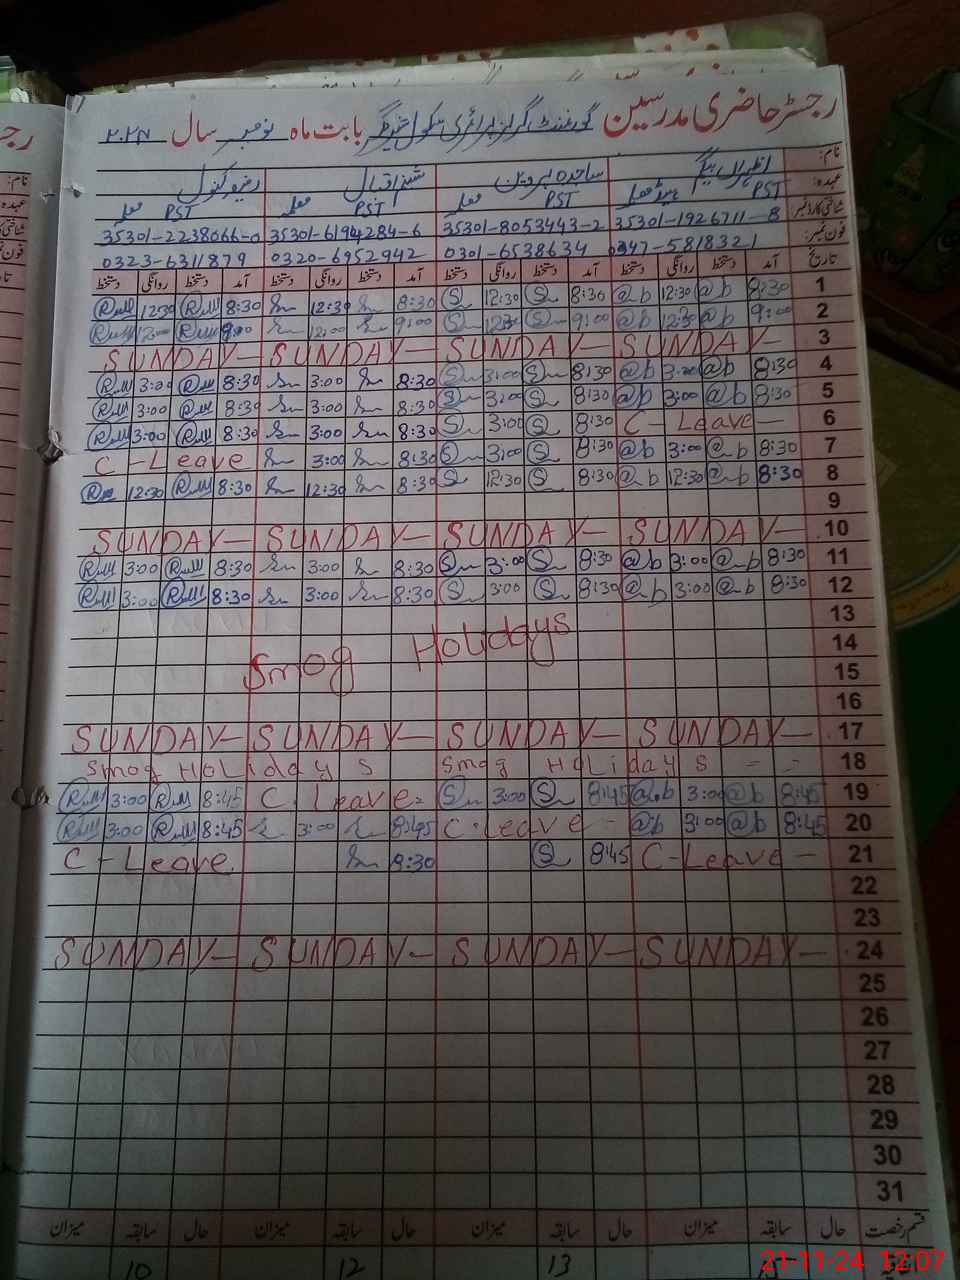 رجسٹر حاضری مدرسین گورنمنٹ گرلز پرائمری سکول بابت ماہ نومبر سال ۲۰۲۴
نام: ساجدہ پروین اقبال کنول
عہدہ: PST ہیڈ معلمہ PST معلمہ PST معلمہ PST معلمہ
شناختی کارڈ نمبر: 35301-1926711-8 35301-8053443-2 35301-6194284-6 35301-2238066-0
فون نمبر: 0347-5818321 0301-6538634 0320-6952942 0323-6311879
تاریخ آمد دستخط روانگی دستخط آمد دستخط روانگی دستخط آمد دستخط روانگی دستخط آمد دستخط روانگی دستخط
12:30 8:30 12:30 8:30 12:30 8:30 12:30 8:30 1
12:00 9:00 12:00 9:00 12:30 9:00 12:30 9:00 2
SUNDAY– SUNDAY– SUNDAY– SUNDAY– 3
3:00 8:30 3:00 8:30 3:00 8:30 3:00 8:30 4
3:00 8:30 3:00 8:30 3:00 8:30 3:00 8:30 5
3:00 8:30 3:00 8:30 3:00 8:30 C-Leave– 6
C-Leave 3:00 8:30 3:00 8:30 3:00 8:30 7
12:30 8:30 12:30 8:30 12:30 8:30 12:30 8:30 8
9
SUNDAY– SUNDAY– SUNDAY– SUNDAY– 10
3:00 8:30 3:00 8:30 3:00 8:30 3:00 8:30 11
3:00 8:30 3:00 8:30 3:00 8:30 3:00 8:30 12
13
Smog Holidays 14
15
16
SUNDAY– SUNDAY– SUNDAY– SUNDAY– 17
Smog Holidays Smog Holidays - - 18
3:00 8:45 C.Leave 3:00 8:45 3:00 8:45 19
3:00 8:45 3:00 8:45 C.Leave – 3:00 8:45 20
C-Leave 8:30 8:45 C-Leave– 21
22
23
SUNDAY– SUNDAY– SUNDAY– SUNDAY– 24
25
26
27
28
29
30
31
قسم رخصت حال سابقہ میزان حال سابقہ میزان حال سابقہ میزان حال سابقہ میزان
10 12 13
21-11-24 12:07